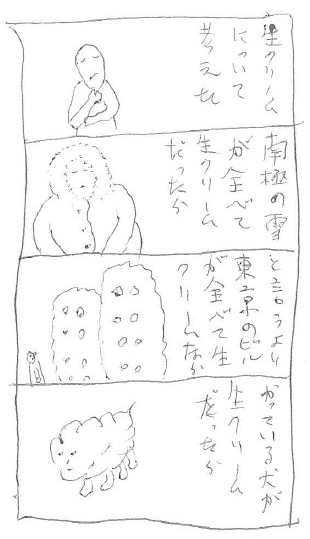 生クリーム
について
考えた
南極の雪
が全べて
生クリーム
だったら
と言うより
東京のビル
が全べて生
クリームなら
かっている犬が
生クリーム
だったら